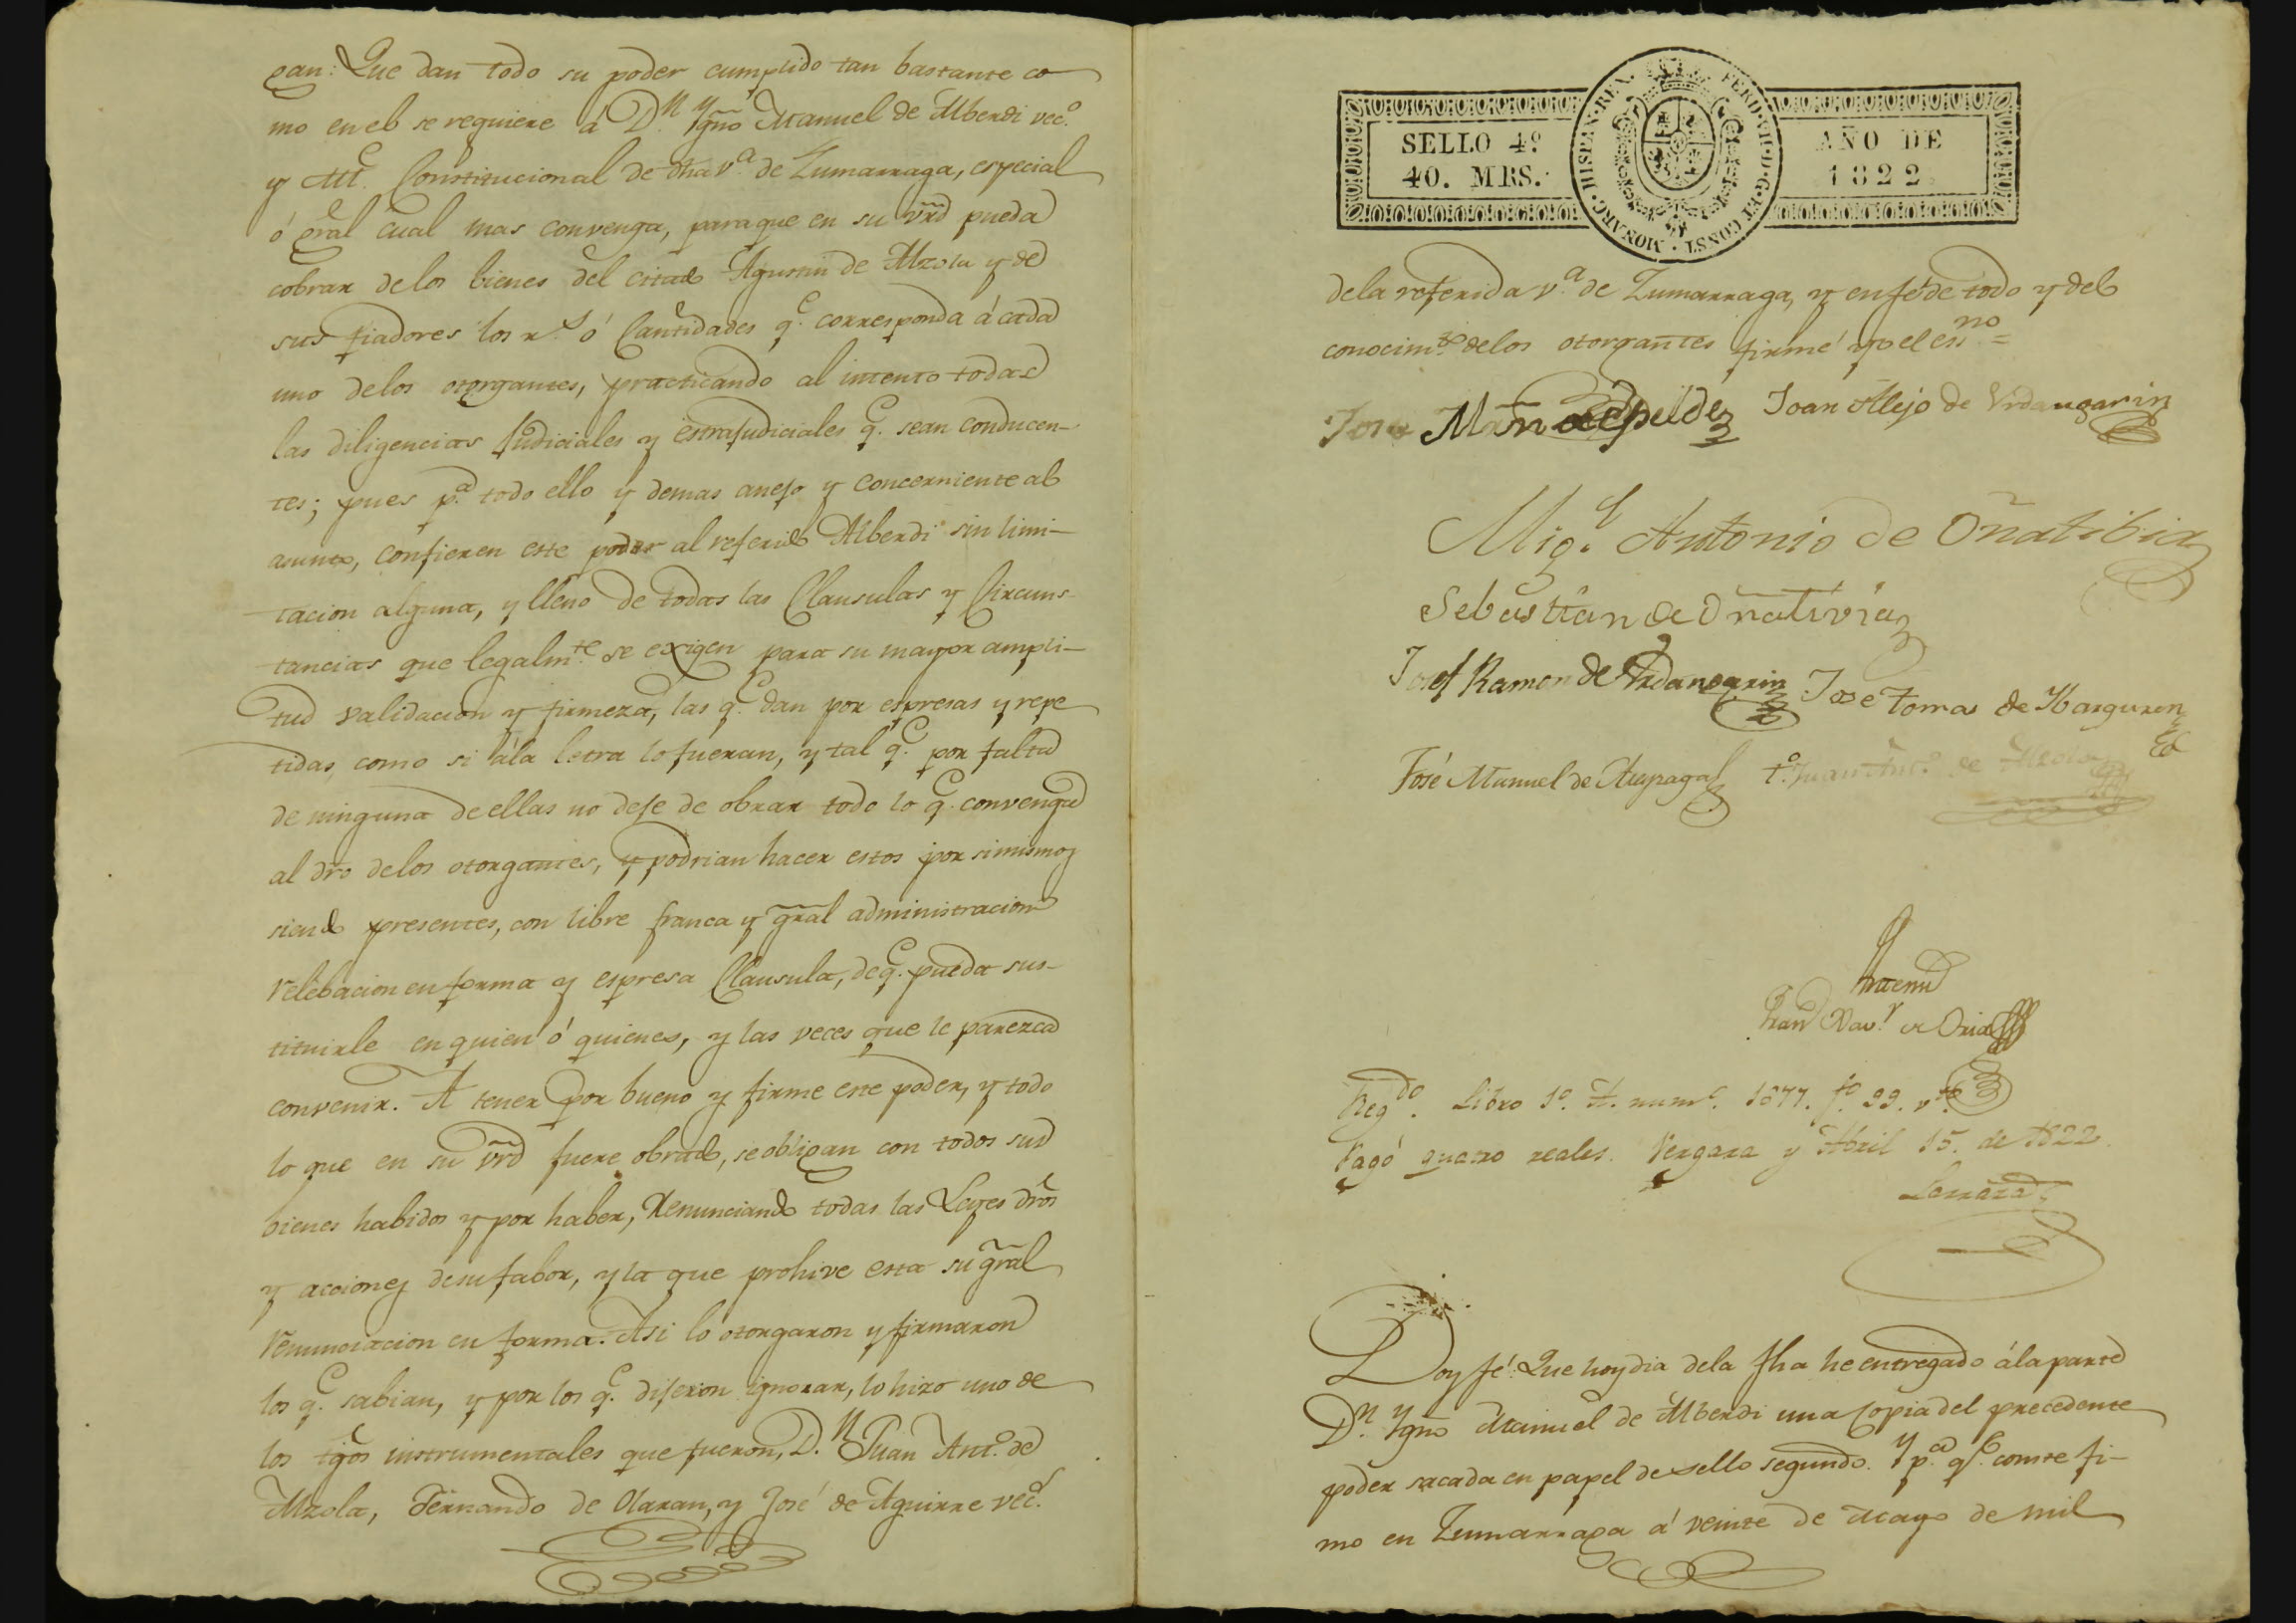 gan: Que dan todo su poder cumplido tan bastante co
mo en el se requiere á D.n Ygn.o Manuel de Alberdi vec.o
y Alc.e Constitucional de dha v.a de Zumarraga, especial
ó gral cual mas convenga, para que en su vrd pueda
cobrar de los bienes del citado Agustin de Alzola y de
sus fiadores los r.s ó Cantidades q.e corresponda á cada
uno delos otorgantes, practicando al intento todas
las diligencias Judiciales y estrajudiciales q.e sean conducen-
tes; pues p.a todo ello y demas anejo y concerniente al
asunto, confieren este poder al referido Alberdi sin limi-
tacion alguna, y lleno de todas las Clausulas y Circuns-
tancias que legalm.te se exigen para su mayor ampli-
tud validacion y firmeza, las q.e dan por espresas y repe
tidas como si ála letra lo fueran, y tal q.e por falta
de ninguna de ellas no deje de obrar todo lo q.e convenga
al dro delos otorgantes, y podrian hacer estos por simismos
siendo presentes, con libre franca y gral administracion
relebacion en forma y espresa Clausula, de q.e pueda sus-
tituirle en quien ó quienes, y las veces que le parezca
convenir. A tener por bueno y firme este poder, y todo
lo que en su vrd fuere obrado, se obligan con todos sus
bienes habidos y por haber, Renunciando todas las Leyes dros
y acciones desu fabor, y la que prohive esta su gral
renunciacion en forma. Asi lo otorgaron y firmaron
los q.e sabian, y por los q.e dijeron ignorar, lo hizo uno de
los tgos instrumentales que fueron, D.n Juan Ant.o de
Alzola, Fernando de Olaran, y José de Aguirre vec.s
SELLO 4º
40. MRS.
AÑO DE
1822
FERD. VII. D. G. ET CONST. MONARC. HISPAN. REX.
dela referida v.a de Zumarraga, y en fé de todo y del
conocim.to delos otorgantes firmé yo el ess.no =
Man de Epelde Joan Alejo de Vrdangarin
Mig.l Antonio de Oñatibia
Sebastian de Oñativia
Josef Ramon de Vrdangarin Jose Tomas de Ybarguren
José Manuel de Aupagal t.o Juan Ant.o de Alzola
Antemi
Fran Xav.r de Oria
Reg.do Libro 1.o A. num.o 1077. f.o 99. v.to
Pagó quatro reales. Vergara y Abril 15. de 1822.
Doy fé: Que hoy dia dela fha he entregado ála parte
D.n Ygn.o Manuel de Alberdi una copia del precedente
poder sacada en papel de sello segundo. Y p.a q.e conste fi-
mo en Zumarraga á veinte de Mayo de mil